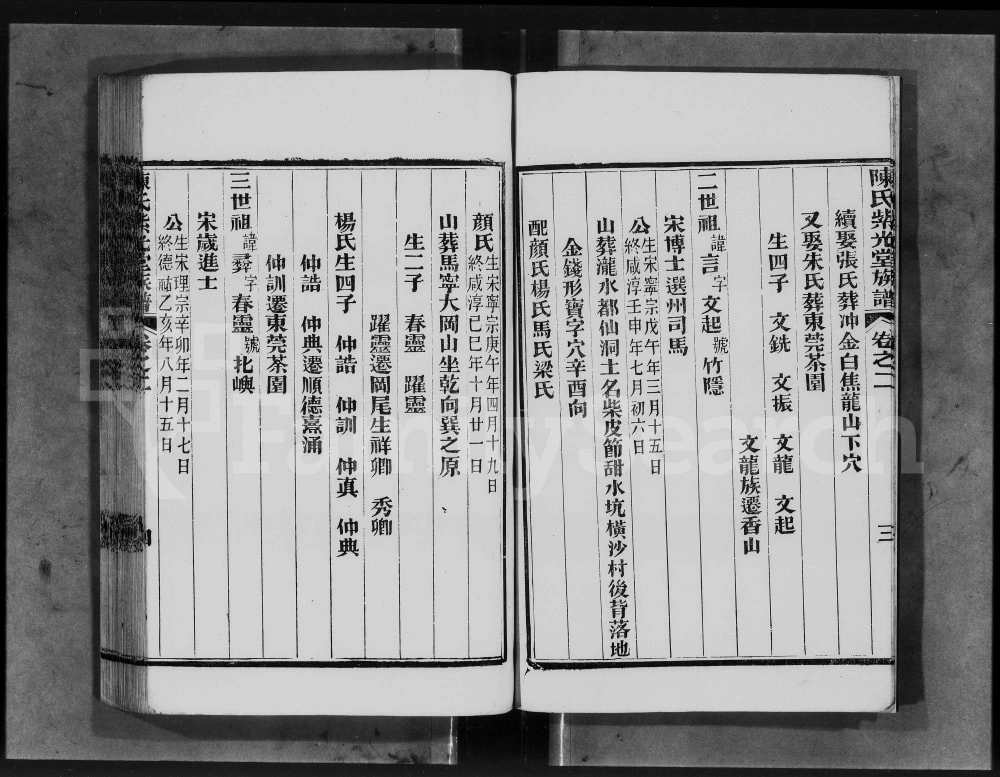 陳氏紫光堂族譜 卷之二 三
續娶張氏葬冲金白焦龍山下穴
又娶朱氏葬東莞茶園
生四子 文銑 文振 文龍 文起
文龍族遷香山
二世祖諱言字文起號竹隱
宋博士選州司馬
公生宋寧宗戊午年三月十五日
終咸淳壬申年七月初六日
山葬瀧水都仙洞土名柴皮節甜水坑橫沙村後背落地
金錢形寶字穴辛酉向
配顏氏楊氏馬氏梁氏
顏氏生宋寧宗庚午年四月十九日
終咸淳己巳年十月廿一日
山葬馬寧大岡山坐乾向巽之原
生二子 春靈 躍靈
躍靈遷岡尾生祥卿 秀卿
楊氏生四子 仲誥 仲訓 仲眞 仲典
仲誥 仲典遷順德熹涌
仲訓遷東莞茶園
三世祖諱彛字春靈號北嶼
宋歲進士
公生宋理宗辛卯年二月十七日
終德祐乙亥年八月十五日
FamilySearch